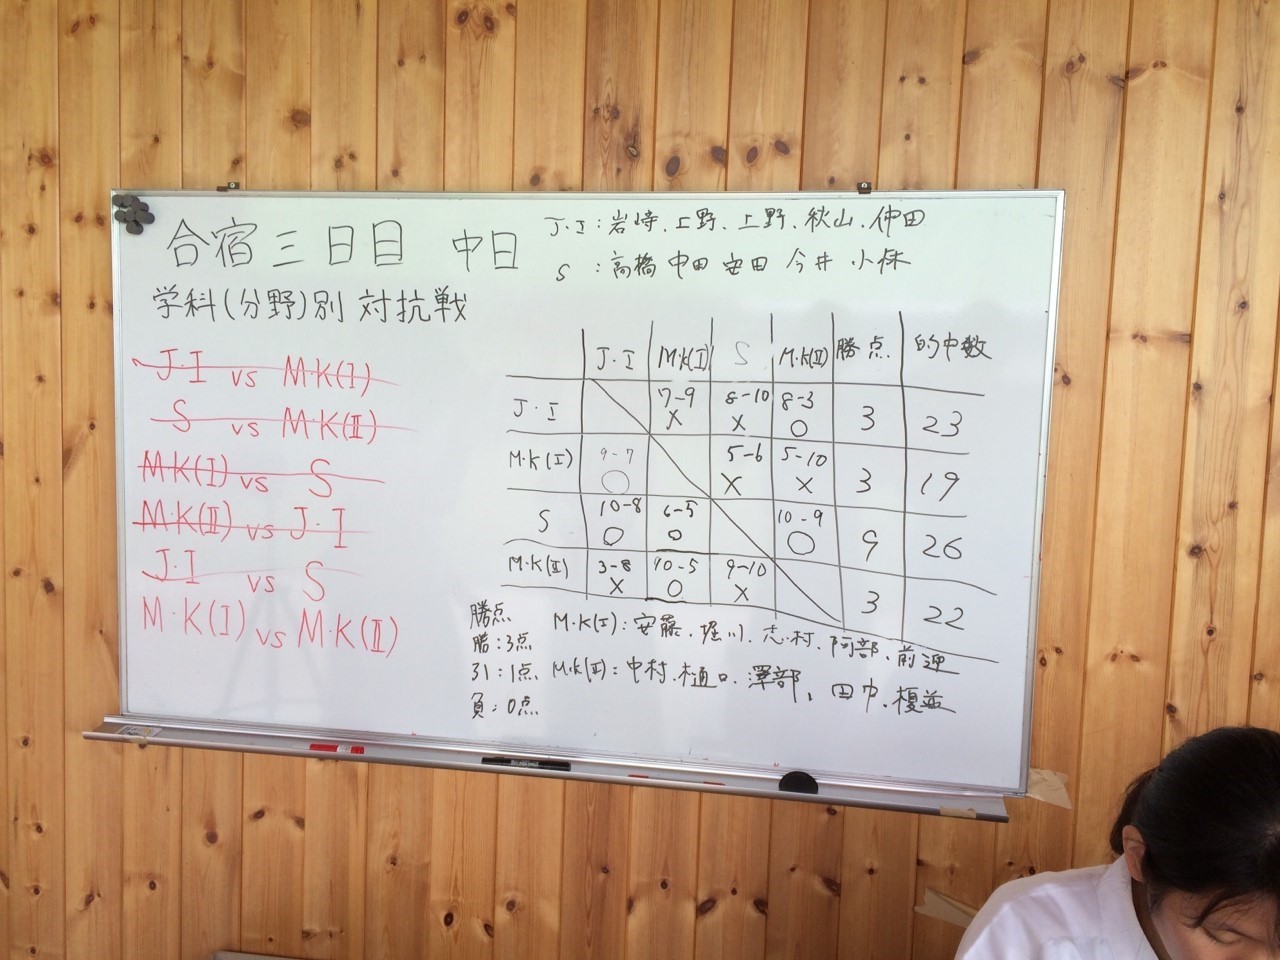 合宿三日目 中日
学科(分野)別 対抗戦
J・I：岩崎、上野、上野、秋山、仲田
S：高橋 中田 安田 今井 小保
J・I vs M・K(I)
S vs M・K(II)
M・K(I) vs S
M・K(II) vs J・I
J・I vs S
M・K(I) vs M・K(II)
J・I M・K(I) S M・K(II) 勝点 的中数
J・I 7-9 × 8-10 × 8-3 ○ 3 23
M・K(I) 9-7 ○ 5-6 × 5-10 × 3 19
S 10-8 ○ 6-5 ○ 10-9 ○ 9 26
M・K(II) 3-8 × 10-5 ○ 9-10 × 3 22
勝点
勝：3点
引：1点
負：0点
M・K(I)：安藤、堀川、志村、阿部、前迎
M・K(II)：中村、樋口、澤部、田中、榎並